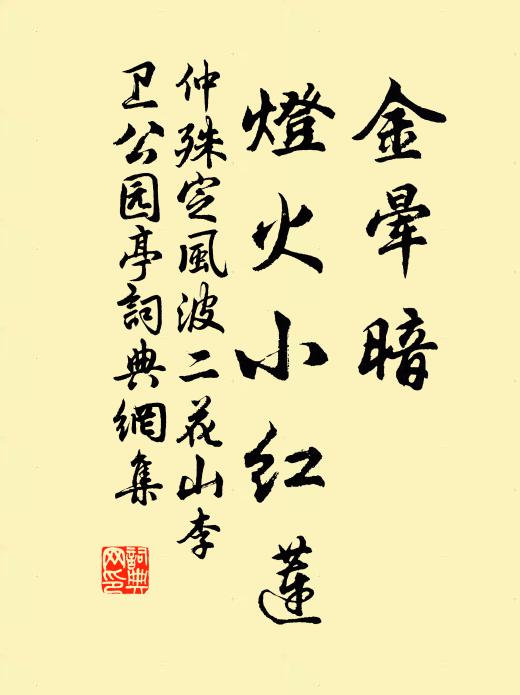 金暈暗
燈火小红蓮
仲殊定風波二花山李
卫公园亭詞典網集
詞典网印